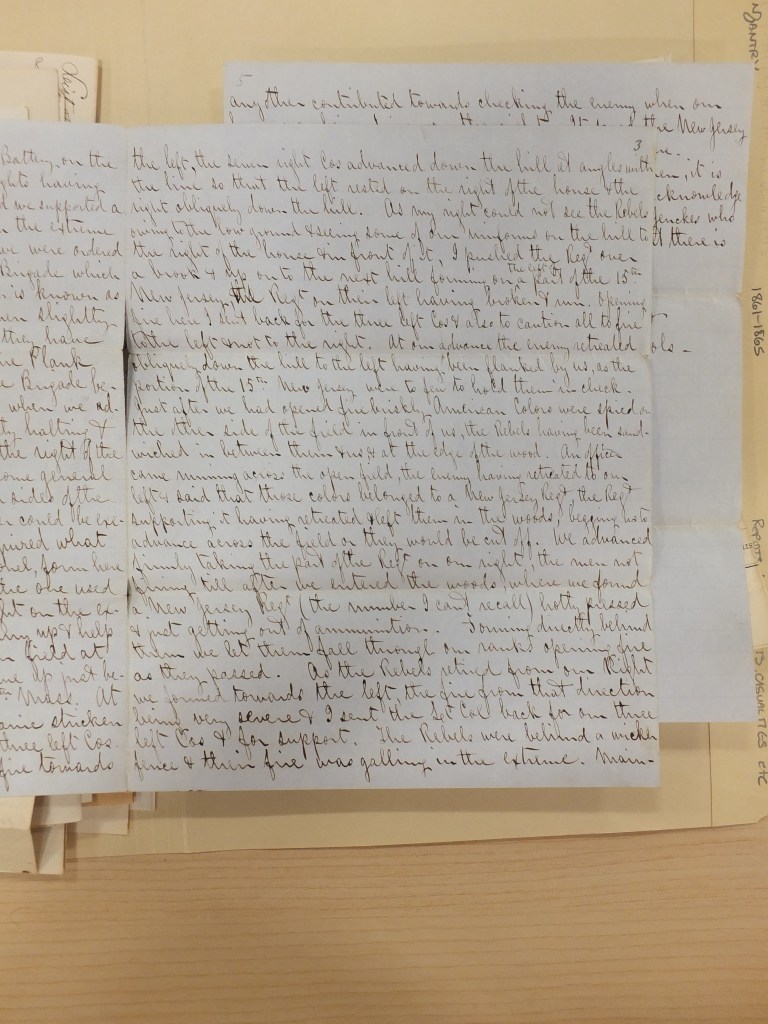 Battery, on the
having
d we supported a
the extreme
we were ordered
Brigade which
is known as
en slightly
they have
Plank
e Brigade be-
when we ad-
halting &
the right of the
ome general
sides of the
could be exe-
quired what
form here
the one used
ht on the ex-
up & help
field at
up just be-
Mass. At
panic stricken
three left Cos.
fire towards
3
the left, the seven right Cos advanced down the hill at angles with
the line so that the left rested on the right of the house & the
right obliquely down the hill. As my right could not see the Rebels
owing to the low ground & seeing some of our uniforms on the hill to
the right of the house & in front of it, I pushed the Regt over
a brook & up on to the next hill forming on the left of a part of the 15th
New Jersey, the Regt on their left having broken & run. Opening
fire here I sent back for the three left Cos & also to caution all to fire
to the left & not to the right. At our advance the enemy retreated
obliquely down the hill to the left having been flanked by us, as the
portion of the 15th New Jersey were to few to hold them in check.
Just after we had opened fire briskly American Colors were spied on
the other side of the field in front of us, the Rebels having been sand-
wiched in between them & us & at the edge of the wood. An officer
came running across the open field, the enemy having retreated to our
left & said that those colors belonged to a New Jersey Regt, the Regt
supporting it having retreated & left them in the woods, begging us to
advance across the field or they would be cut off. We advanced
firmly taking the part of the Regt on our right, the men not
firing till after we entered the woods, where we found
a New Jersey Regt (the number I cant recall) hotly pressed
& just getting out of ammunition. Forming directly behind
them we let them fall through our ranks opening fire
as they passed. As the Rebels retired from our Right
we formed towards the left the fire from that direction
being very severe & I sent the Lt Col back for our three
left Cos & for support. The Rebels were behind a wicker
fence & their fire was galling in the extreme. Main-
5
any other contributed towards checking the enemy when our
the New Jersey
it is
acknowledge
who
there is
ols-
1861-1865
REPORTS
CASUALTIES etc